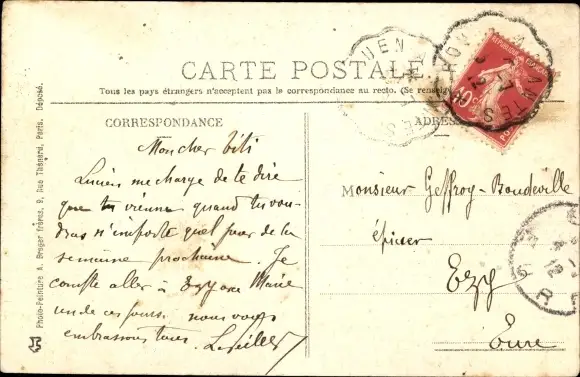 CARTE POSTALE.
Tous les pays étrangers n'acceptent pas la correspondance au recto. (Se renseig
CORRESPONDANCE
ADRES
Mon cher Titi
Lucien me charge de te dire
que tu viennes quand tu vou-
dras n'importe quel jour de la
semaine prochaine. Je
compte aller à Ezy avec Marie
un de ces jours. nous vous
embrassons tous.
Monsieur Geffroy-Boudeville
épicier
Ezy
Eure
Photo-Peinture A. Breger frères, 9, Rue Thénard, Paris. Déposé.
10